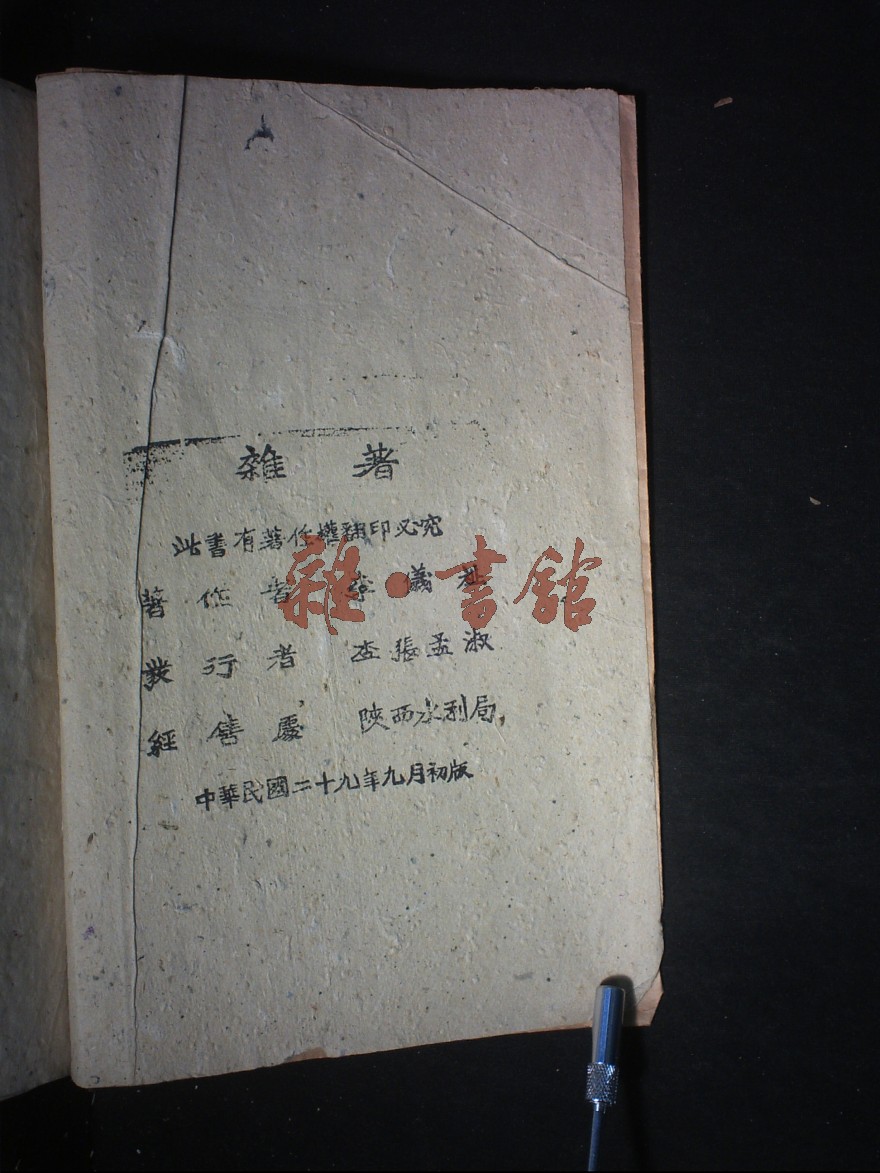 雜著
此書有著作權翻印必究
著作者 李儀祉
發行者 李張孟淑
經售處 陝西水利局
中華民國二十九年九月初版
雜·書館